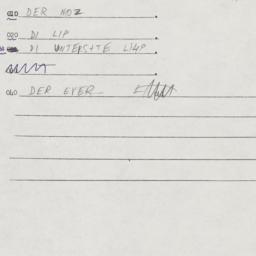 010 DER NOZ.
020 DI LIP.
DI UNTERSTE LIMP.
040 DER EVER